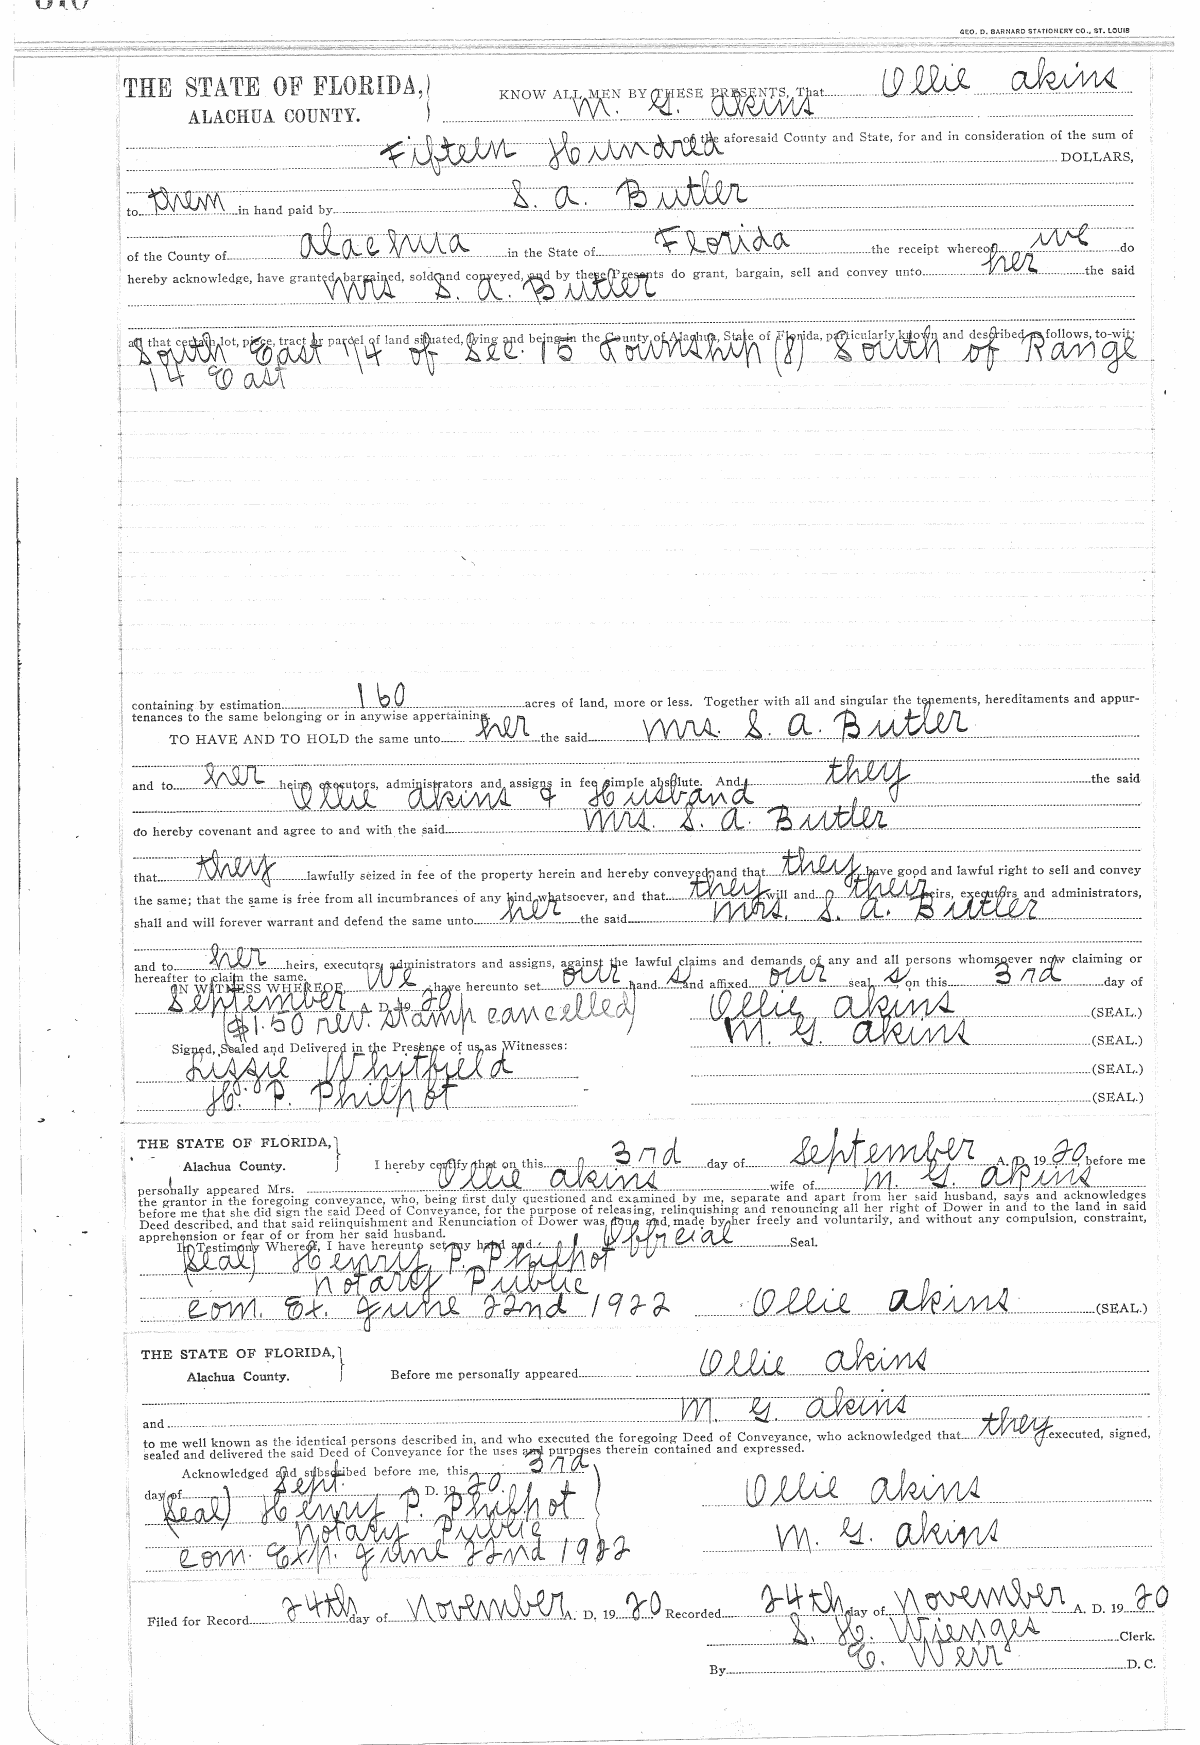 GEO. D. BARNARD STATIONERY CO., ST. LOUIS
THE STATE OF FLORIDA, KNOW ALL MEN BY THESE PRESENTS, That Ollie Akins
ALACHUA COUNTY. M. G. Akins
of the aforesaid County and State, for and in consideration of the sum of
Fifteen Hundred DOLLARS,
to them in hand paid by S. A. Butler
of the County of Alachua in the State of Florida the receipt whereof we do
hereby acknowledge, have granted, bargained, sold and conveyed, and by these Presents do grant, bargain, sell and convey unto her the said
Mrs S. A. Butler
all that certain lot, piece, tract or parcel of land situated, lying and being in the County of Alachua, State of Florida, particularly known and described as follows, to-wit:
South East 1/4 of Sec. 15 Township (8) South of Range
14 East
containing by estimation 160 acres of land, more or less. Together with all and singular the tenements, hereditaments and appur-
tenances to the same belonging or in anywise appertaining.
TO HAVE AND TO HOLD the same unto her the said Mrs. S. A. Butler
and to her heirs, executors, administrators and assigns in fee simple absolute. And they the said
Ollie Akins & Husband
do hereby covenant and agree to and with the said Mrs. S. A. Butler
that they lawfully seized in fee of the property herein and hereby conveyed, and that they have good and lawful right to sell and convey
the same; that the same is free from all incumbrances of any kind whatsoever, and that they will and their heirs, executors and administrators,
shall and will forever warrant and defend the same unto her the said Mrs. S. A. Butler
and to her heirs, executors, administrators and assigns, against the lawful claims and demands of any and all persons whomsoever now claiming or
hereafter to claim the same.
IN WITNESS WHEREOF, We have hereunto set our hands and affixed our seals on this 3rd day of
September A. D. 1920 Ollie Akins (SEAL.)
($1.50 rev. stamp cancelled) M. G. Akins (SEAL.)
Signed, Sealed and Delivered in the Presence of us as Witnesses:
Lizzie Whitfield (SEAL.)
H. P. Philpot (SEAL.)
THE STATE OF FLORIDA,
Alachua County. I hereby certify that on this 3rd day of September A. D. 1920 before me
personally appeared Mrs. Ollie Akins wife of M. G. Akins
the grantor in the foregoing conveyance, who, being first duly questioned and examined by me, separate and apart from her said husband, says and acknowledges
before me that she did sign the said Deed of Conveyance, for the purpose of releasing, relinquishing and renouncing all her right of Dower in and to the land in said
Deed described, and that said relinquishment and Renunciation of Dower was done and made by her freely and voluntarily, and without any compulsion, constraint,
apprehension or fear of or from her said husband.
In Testimony Whereof, I have hereunto set my hand and Official Seal.
(Seal) Henry P. Philpot
Notary Public
Com. Ex. June 22nd 1922 Ollie Akins (SEAL.)
THE STATE OF FLORIDA,
Alachua County. Before me personally appeared Ollie Akins
and M. G. Akins
to me well known as the identical persons described in, and who executed the foregoing Deed of Conveyance, who acknowledged that they executed, signed,
sealed and delivered the said Deed of Conveyance for the uses and purposes therein contained and expressed.
Acknowledged and subscribed before me, this 3rd
day of Sept. A. D. 1920.
(Seal) Henry P. Philpot Ollie Akins
Notary Public M. G. Akins
Com. Exp. June 22nd 1922
Filed for Record 24th day of November A. D. 1920 Recorded 24th day of November A. D. 1920
S. H. Wienges Clerk.
By E. Weir D. C.